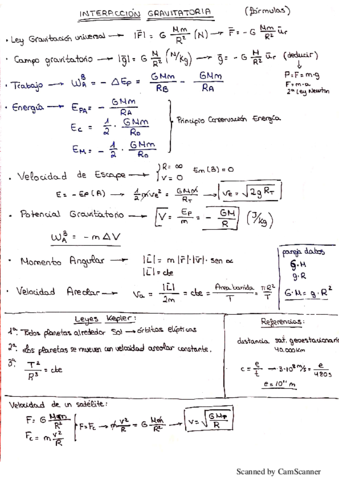 INTERACCIÓN GRAVITATORIA (fórmulas)
• Ley Gravitación universal → |F̄| = G Mm/R² (N) → F̄ = - G Mm/R² ūr
• Campo gravitatorio → |ḡ| = G M/R² (N/kg) → ḡ = - G M/R² ūr (deducir)
P = F = m·g
F = m·a
2ª Ley Newton
• Trabajo → W_A^B = - ΔEp = GMm/R_B - GMm/R_A
• Energía → E_PA = - GMm/R_A
E_c = 1/2 · GMm/R_0
E_M = - 1/2 · GMm/R_0
Principio Conservación Energía
• Velocidad de Escape → {R = ∞ V = 0 Em(B) = 0
E = - Ep(A) → 1/2 m ve² = GMm/R_T → ve = √2gR_T
• Potencial Gravitatorio → V = Ep/m = - GM/R (J/kg)
W_A^B = - m ΔV
• Momento Angular → |L̄| = m |r̄| · |v̄| · sen α
|L̄| = cte
pareja datos
G·M
g·R
G·M = g·R²
• Velocidad Areolar → Va = |L̄|/2m = cte = Área barrida/T = πR²/T
Leyes Kepler:
1ª. Todos planetas alrededor Sol → órbitas elípticas
2ª. Los planetas se mueven con velocidad areolar constante.
3ª. T²/R³ = cte
Referencias:
distancia sat. geoestacionario
40.000km
c = e/t → 3·10⁸ m/s = e/480s
e = 10¹¹ m
Velocidad de un satélite:
F = G Mm/R²
Fc = m v²/R
F = Fc → m v²/R = G Mm/R² → v = √GM/R
Scanned by CamScanner